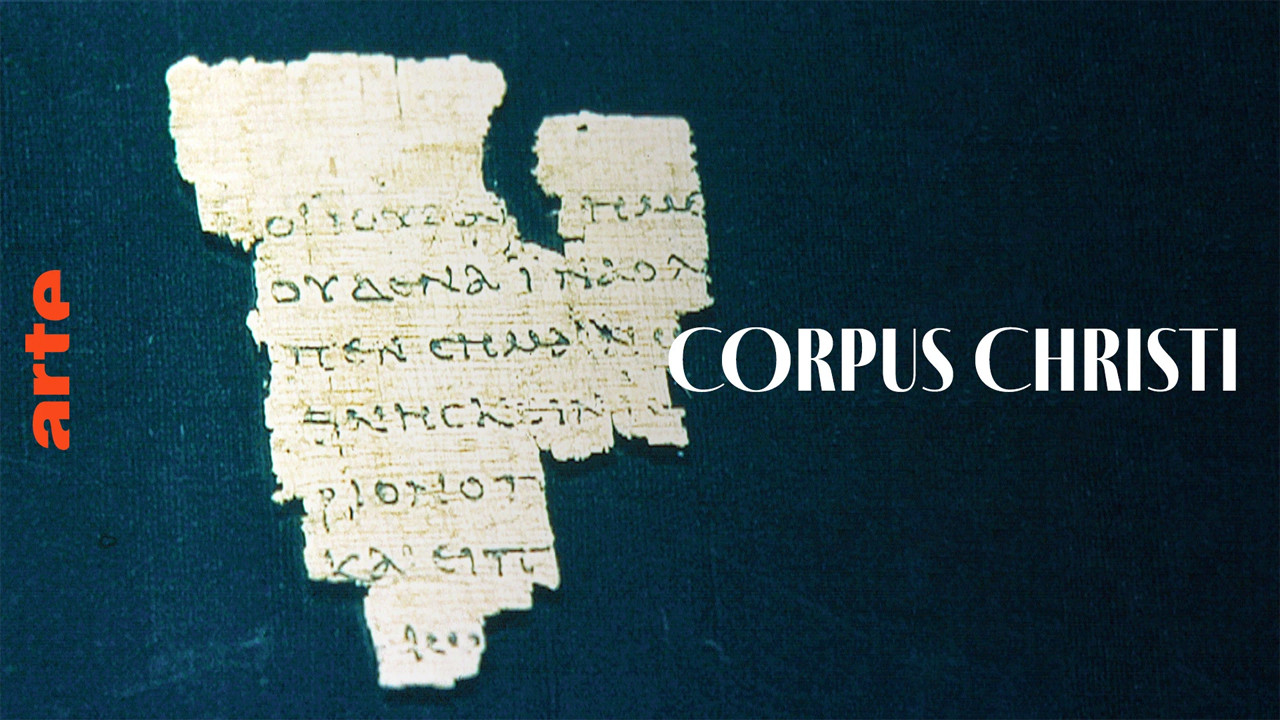 arte
ΟΙΙΟΥΔΑΙ ΗΜΕ
ΟΥΔΕΝΑΙΝΑΟΛ
ΠΕΝϹΗΜΑΙΝ
ΘΝΗϹΚΕΙΝ
ΡΙΟΝΟΠ
ΚΑΙΕΙΠ
CORPUS CHRISTI